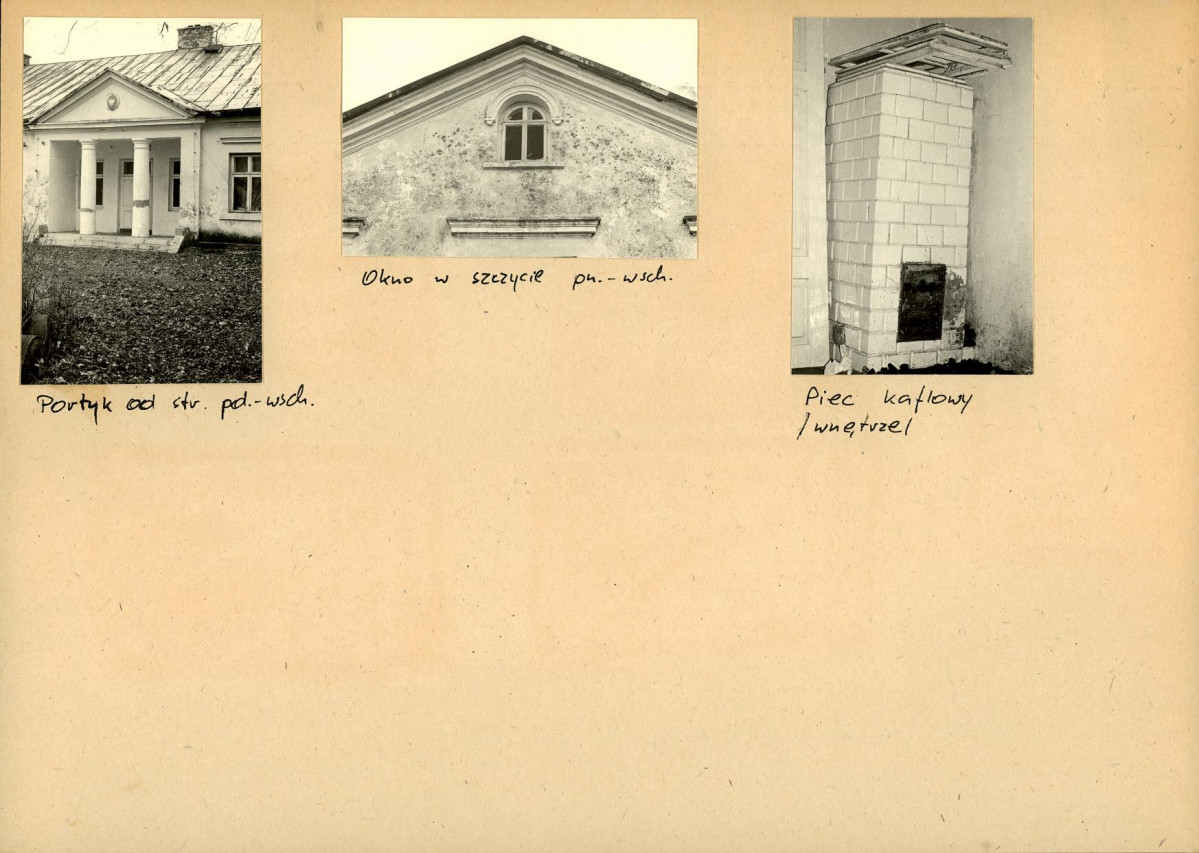 Okno w szczycie pn.-wsch.
Portyk od str. pd.-wsch.
Piec kaflowy
/wnętrze/